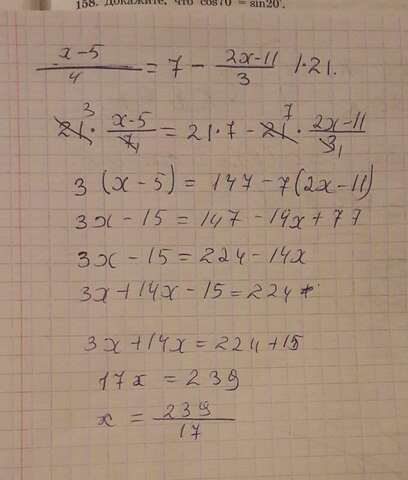 158. Докажите, что cos70 = sin20°.
x-5/4 = 7 - 2x-11/3 | · 21.
3 7
21 · x-5/7 1 = 21·7 - 21 · 2x-11/3 1
3 (x - 5) = 147 - 7(2x - 11)
3x - 15 = 147 - 14x + 77
3x - 15 = 224 - 14x
3x + 14x - 15 = 224
3x + 14x = 224 + 15
17x = 239
x = 239/17